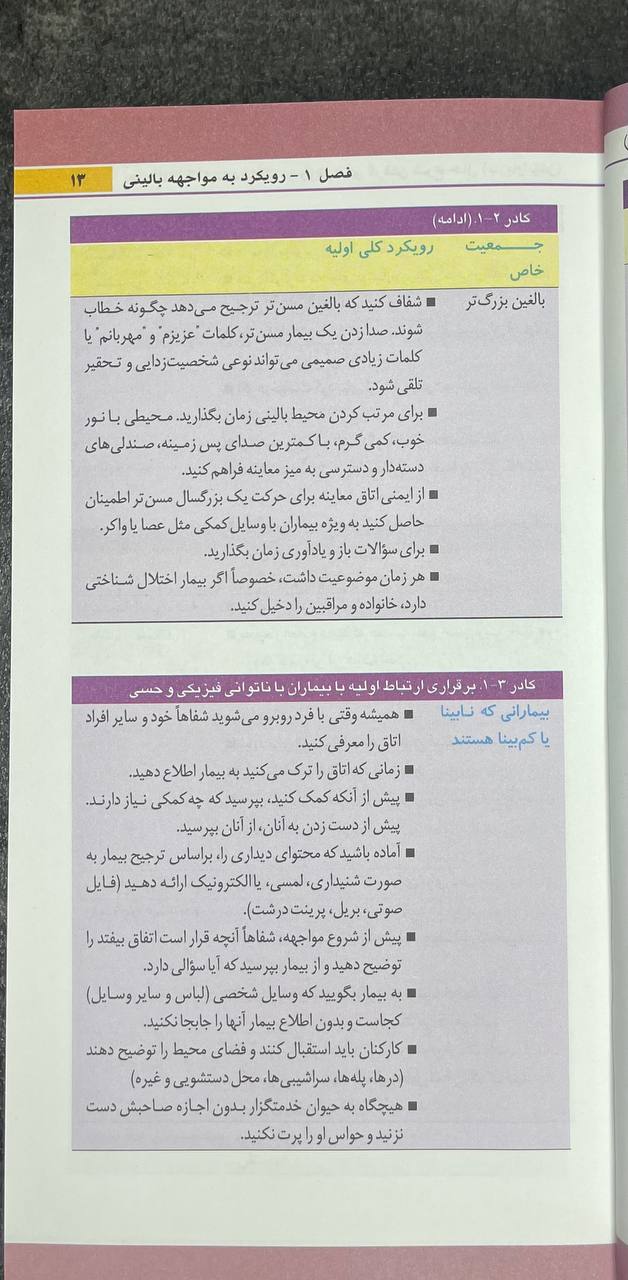 فصل ۱ - رویکرد به مواجهه بالینی ۱۳
کادر ۲-۱. (ادامه)
جـــمعیت رویکرد کلی اولیه
خاص
بالغین بزرگ‌تر ■ شفاف کنید که بالغین مسن‌تر ترجیح می‌دهد چگونه خطاب
شوند. صدا زدن یک بیمار مسن‌تر، کلمات "عزیزم" و "مهربانم" یا
کلمات زیادی صمیمی می‌تواند نوعی شخصیت‌زدایی و تحقیر
تلقی شود.
■ برای مرتب کردن محیط بالینی زمان بگذارید. محیطی با نور
خوب، کمی گرم، با کمترین صدای پس زمینه، صندلی‌های
دسته‌دار و دسترسی به میز معاینه فراهم کنید.
■ از ایمنی اتاق معاینه برای حرکت یک بزرگسال مسن‌تر اطمینان
حاصل کنید به ویژه بیماران با وسایل کمکی مثل عصا یا واکر.
■ برای سؤالات باز و یادآوری زمان بگذارید.
■ هر زمان موضوعیت داشت، خصوصاً اگر بیمار اختلال شناختی
دارد، خانواده و مراقبین را دخیل کنید.
کادر ۳-۱. برقراری ارتباط اولیه با بیماران با ناتوانی فیزیکی و حسی
بیمارانی که نابینا ■ همیشه وقتی با فرد روبرو می‌شوید شفاهاً خود و سایر افراد
یا کم‌بینا هستند اتاق را معرفی کنید.
■ زمانی که اتاق را ترک می‌کنید به بیمار اطلاع دهید.
■ پیش از آنکه کمک کنید، بپرسید که چه کمکی نیاز دارند.
پیش از دست زدن به آنان، از آنان بپرسید.
■ آماده باشید که محتوای دیداری را، براساس ترجیح بیمار به
صورت شنیداری، لمسی، یا الکترونیک ارائه دهید (فایل
صوتی، بریل، پرینت درشت).
■ پیش از شروع مواجهه، شفاهاً آنچه قرار است اتفاق بیفتد را
توضیح دهید و از بیمار بپرسید که آیا سؤالی دارد.
■ به بیمار بگویید که وسایل شخصی (لباس و سایر وسایل)
کجاست و بدون اطلاع بیمار آنها را جابجا نکنید.
■ کارکنان باید استقبال کنند و فضای محیط را توضیح دهند
(درها، پله‌ها، سراشیبی‌ها، محل دستشویی و غیره)
■ هیچگاه به حیوان خدمتگزار بدون اجازه صاحبش دست
نزنید و حواس او را پرت نکنید.